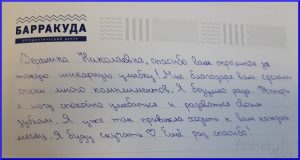 БАРРАКУДА
ОРТОДОНТИЧЕСКИЙ ЦЕНТР
Николаевна, спасибо Вам огромное за
такую шикарную улыбку! Мне благодаря вам сделали
очень много комплиментов. Я безумно рада. Теперь
я могу спокойно улыбаться и радоваться своим
зубкам. Я уже так привыкла ходить к Вам каждый
месяц. Я буду скучать ♡ Ещё раз спасибо!